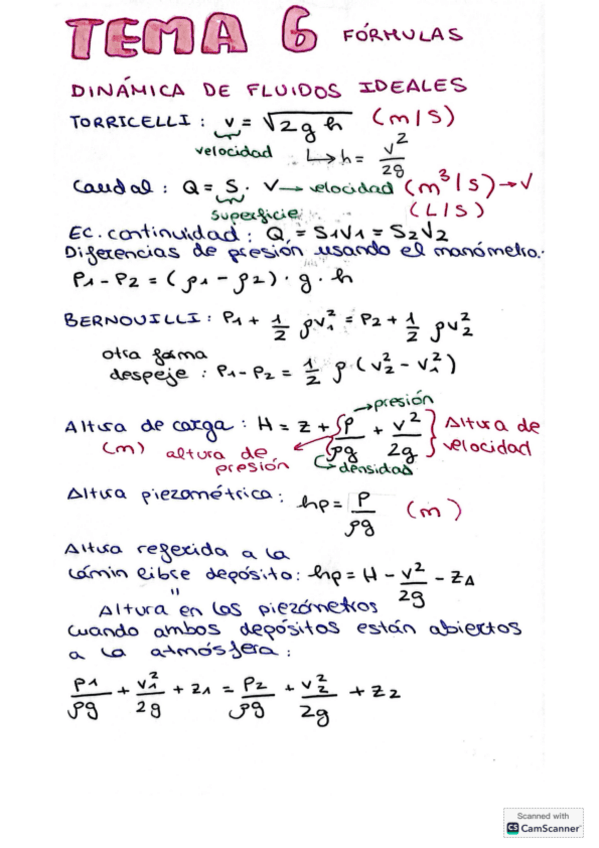 TEMA 6 FÓRMULAS
DINÁMICA DE FLUIDOS IDEALES
TORRICELLI : v = √2gh (m/s)
velocidad ↳ h = v²/2g
Caudal : Q = S · V → velocidad (m³/s) → V
superficie (L/s)
Ec. continuidad : Q, = S1V1 = S2V2
Diferencias de presión usando el manómetro:
P1 - P2 = (ρ1 - ρ2) · g · h
BERNOUILLI : P1 + 1/2 ρv1² = P2 + 1/2 ρv2²
otra forma
despeje : P1 - P2 = 1/2 ρ (v2² - v1²)
→ presión
Altura de carga : H = z + P/ρg + v²/2g } Altura de velocidad
(m) altura de presión ↳ densidad
Altura piezométrica : hp = P/ρg (m)
Altura referida a la
lámin libre depósito : hp = H - v²/2g - ZA
"
Altura en los piezómetros
cuando ambos depósitos están abiertos
a la atmósfera :
P1/ρg + v1²/2g + z1 = P2/ρg + v2²/2g + z2
Scanned with
CS CamScanner